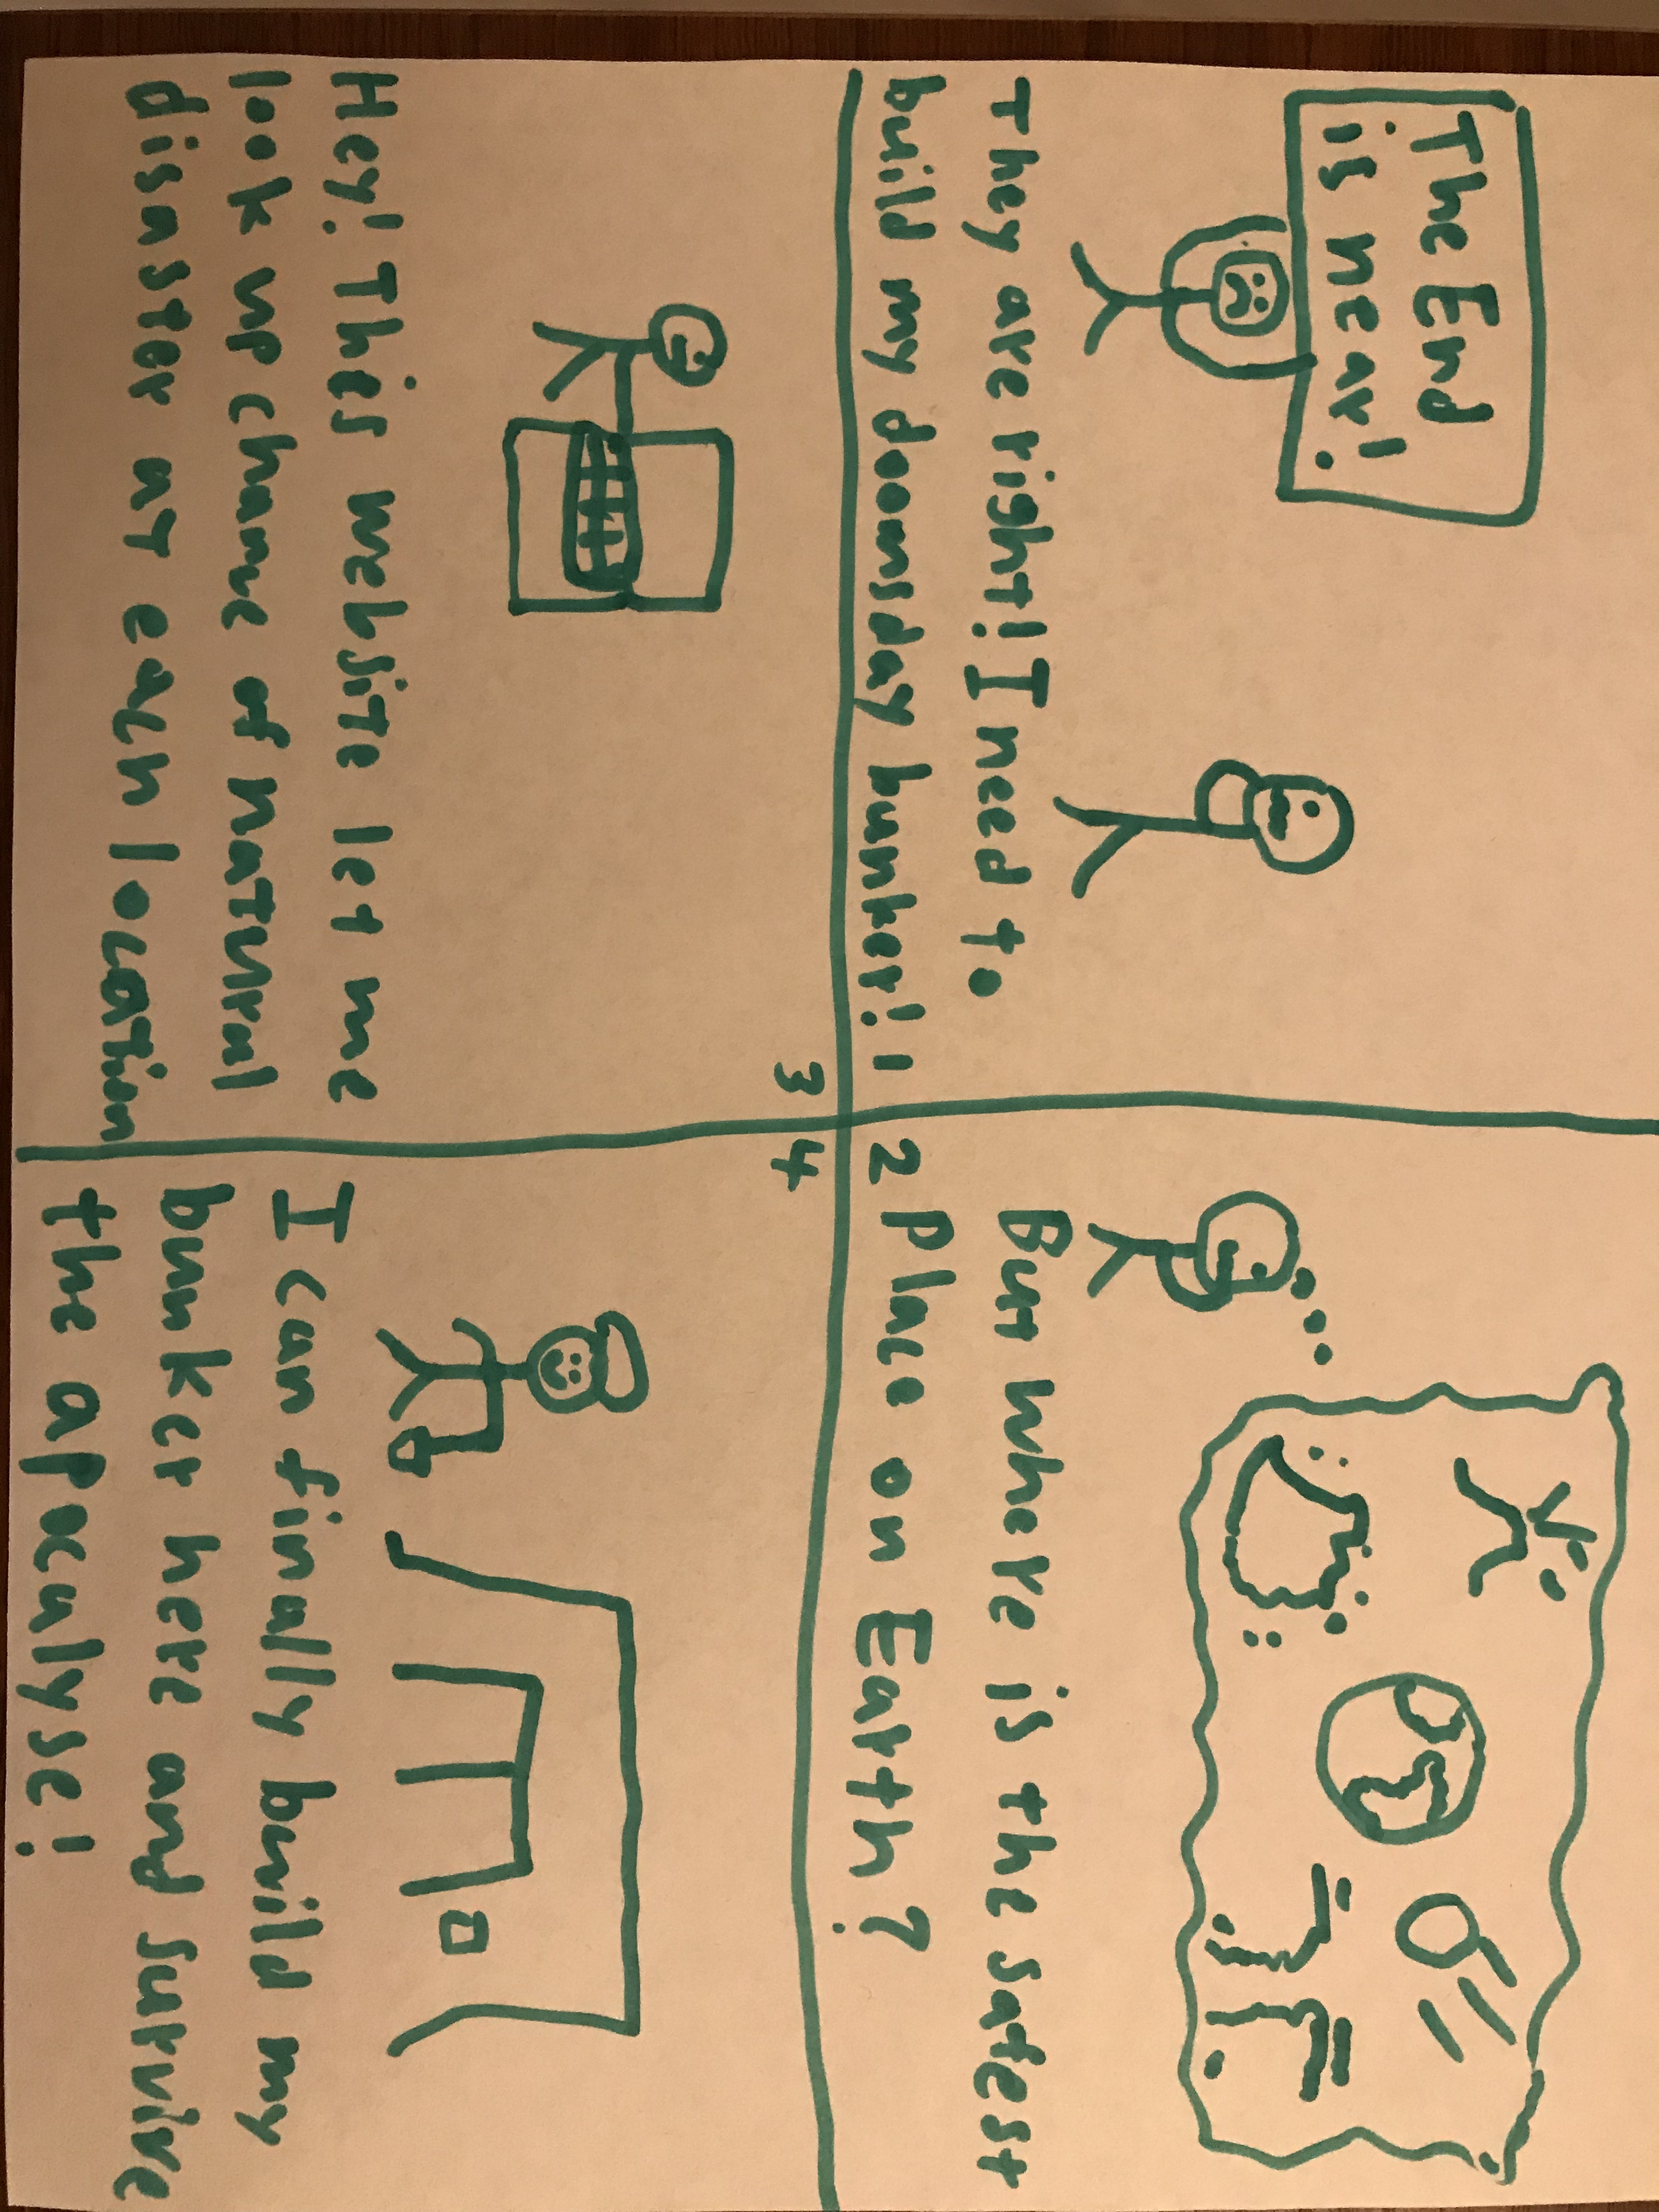 The End
is near!
They are right! I need to
build my doomsday bunker!
1
2
But where is the safest
Place on Earth?
3
Hey! This website let me
look up chance of natural
disaster at each location
4
I can finally build my
bunker here and survive
the apocalyse!